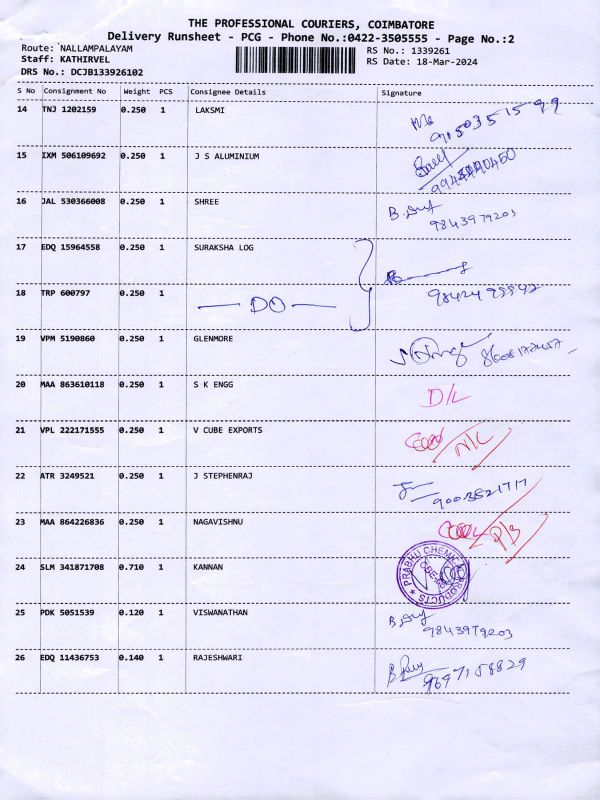 THE PROFESSIONAL COURIERS, COIMBATORE
Delivery Runsheet - PCG - Phone No.:0422-3505555 - Page No.:2
Route: NALLAMPALAYAM
Staff: KATHIRVEL
DRS No.: DCJB133926102
RS No.: 1339261
RS Date: 18-Mar-2024
S No Consignment No Weight PCS Consignee Details Signature
14 TNJ 1202159 0.250 1 LAKSMI
15 IXM 506109692 0.250 1 J S ALUMINIUM
16 JAL 530366008 0.250 1 SHREE
9843979203
17 EDQ 15964558 0.250 1 SURAKSHA LOG
18 TRP 600797 0.250 1 DO
19 VPM 5190860 0.250 1 GLENMORE
20 MAA 863610118 0.250 1 S K ENGG D/L
21 VPL 222171555 0.250 1 V CUBE EXPORTS N/C
22 ATR 3249521 0.250 1 J STEPHENRAJ
9003521717
23 MAA 864226836 0.250 1 NAGAVISHNU P/B
24 SLM 341871708 0.710 1 KANNAN
PRABHU CHEMICAL PRODUCTS
25 PDK 5051539 0.120 1 VISWANATHAN
9843979203
26 EDQ 11436753 0.140 1 RAJESHWARI
9697158829